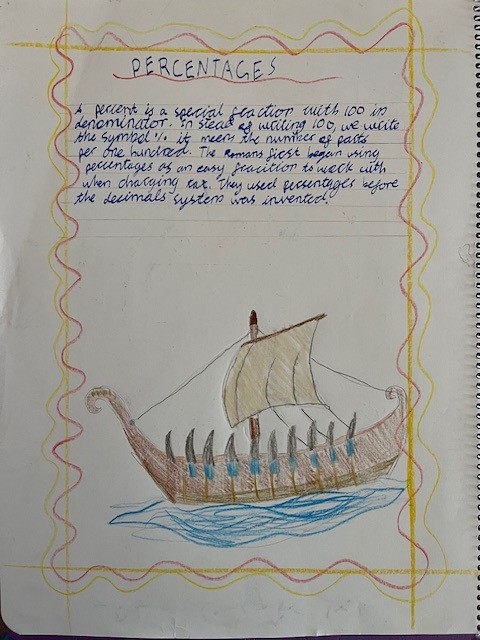 PERCENTAGES
A percent is a special fraction with 100 in
denominator. In stead of writing 100, we write
the symbol % it means the number of parts
per one hundred. The Romans first began using
percentages as an easy fraction to work with
when charging tax. They used percentages before
the decimals system was invented.